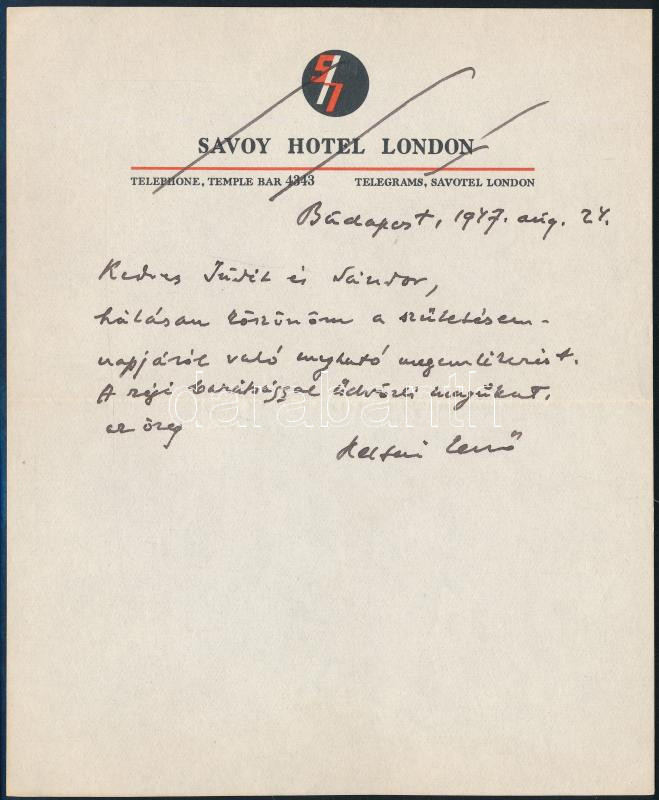 SH
SAVOY HOTEL LONDON
TELEPHONE, TEMPLE BAR 4343 TELEGRAMS, SAVOTEL LONDON
Budapest, 1947. aug. 24.
Kedves Judit és Sándor,
hálásan köszönöm a születésem-
napjáról való megható megemlékezést.
A régi barátsággal üdvözli magukat,
az öreg
Ernő
darabanth